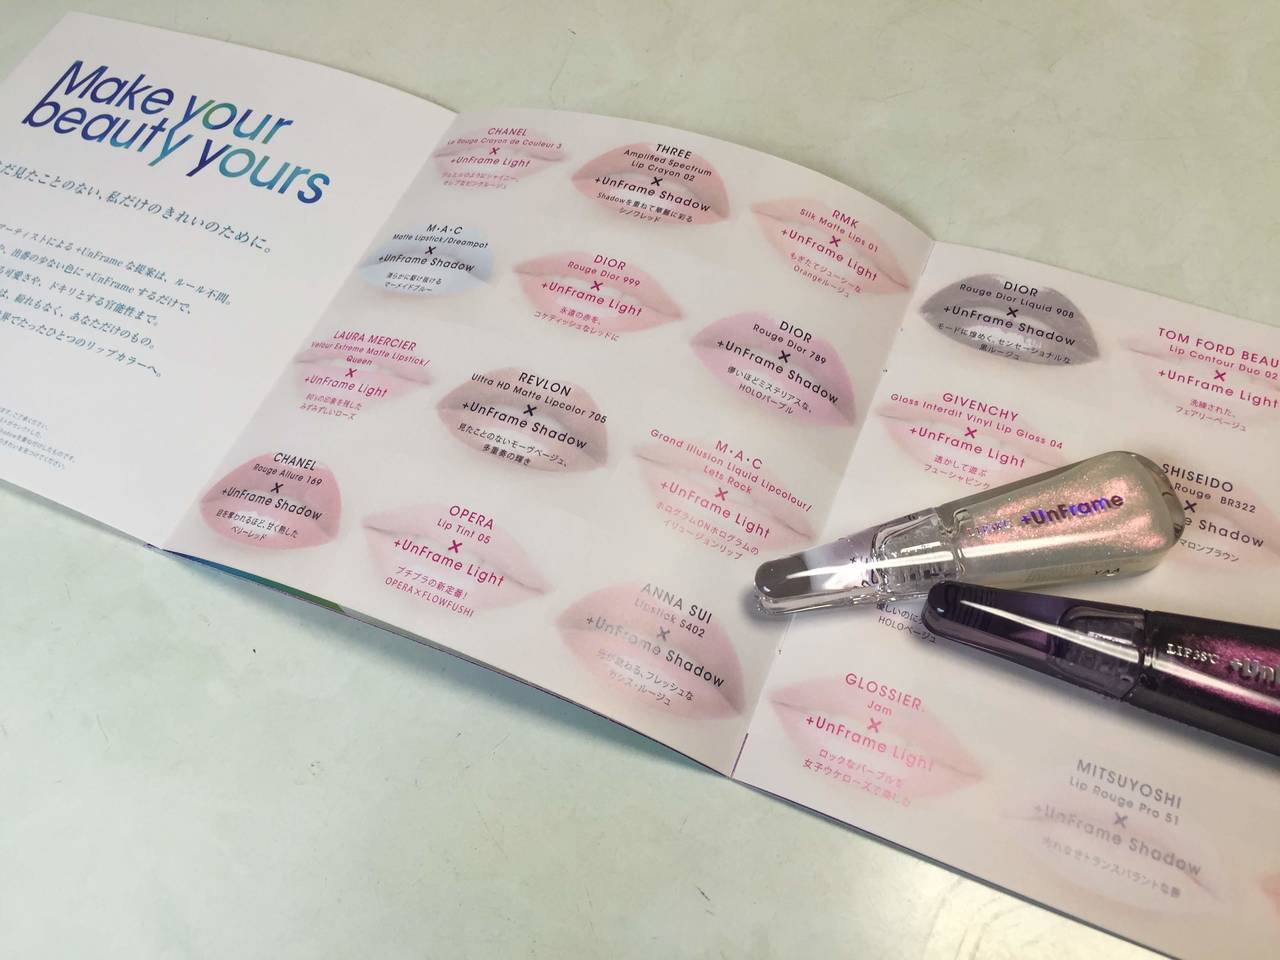 Make your
beauty yours
だ見たことのない、私だけのきれいのために。
アーティストによる+UnFrameな提案は、ルール不問。
や、出番の少ない色に+UnFrameするだけで、
る可愛さや、ドキリとする官能性まで。
は、紛れもなく、あなただけのもの。
界でたったひとつのリップカラーへ。
CHANEL
Le Rouge Crayon de Couleur 3
×
+UnFrame Light
THREE
Amplified Spectrum
Lip Crayon 02
×
+UnFrame Shadow
Shadowを重ねて華麗に彩る
シノワレッド
RMK
Silk Matte Lips 01
×
+UnFrame Light
もぎたてジューシーな
Orangeルージュ
M・A・C
Matte Lipstick/Dreampot
×
+UnFrame Shadow
滑らかに駆け抜ける
マーメイドブルー
DIOR
Rouge Dior 999
×
+UnFrame Light
永遠の赤を、
コケティッシュなレッドに
DIOR
Rouge Dior 789
×
+UnFrame Shadow
儚いほどミステリアスな、
HOLOパープル
LAURA MERCIER
Velour Extreme Matte Lipstick/
Queen
×
+UnFrame Light
80'sの印象を残した
みずみずしいローズ
REVLON
Ultra HD Matte Lipcolor 705
×
+UnFrame Shadow
見たことのないモーヴベージュ、
多重奏の輝き
M・A・C
Grand Illusion Liquid Lipcolour/
Lets Rock
×
+UnFrame Light
ホログラムONホログラムの
イリュージョンリップ
CHANEL
Rouge Allure 169
×
+UnFrame Shadow
目を奪われるほど、甘く熟した
ベリーレッド
OPERA
Lip Tint 05
×
+UnFrame Light
プチプラの新定番!
OPERA×FLOWFUSHI
ANNA SUI
Lipstick S402
×
+UnFrame Shadow
フレッシュな
カシス・ルージュ
DIOR
Rouge Dior Liquid 908
×
+UnFrame Shadow
モードに煌めく、センセーショナルな
黒ルージュ
TOM FORD BEAU
Lip Contour Duo 02
×
+UnFrame Light
洗練された、
フェアリーベージュ
GIVENCHY
Gloss Interdit Vinyl Lip Gloss 04
×
+UnFrame Light
透かして遊ぶ
フューシャピンク
SHISEIDO
Rouge BR322
×
me Shadow
マロンブラウン
LIP38℃ +UnFrame
YAA
優しいのに
HOLOベージュ
LIP38℃ +Un
GLOSSIER.
Jam
×
+UnFrame Light
ロックなパープルを
女子ウケローズで楽しむ
MITSUYOSHI
Lip Rouge Pro 51
×
+UnFrame Shadow
汚れなきトランスパラントな唇